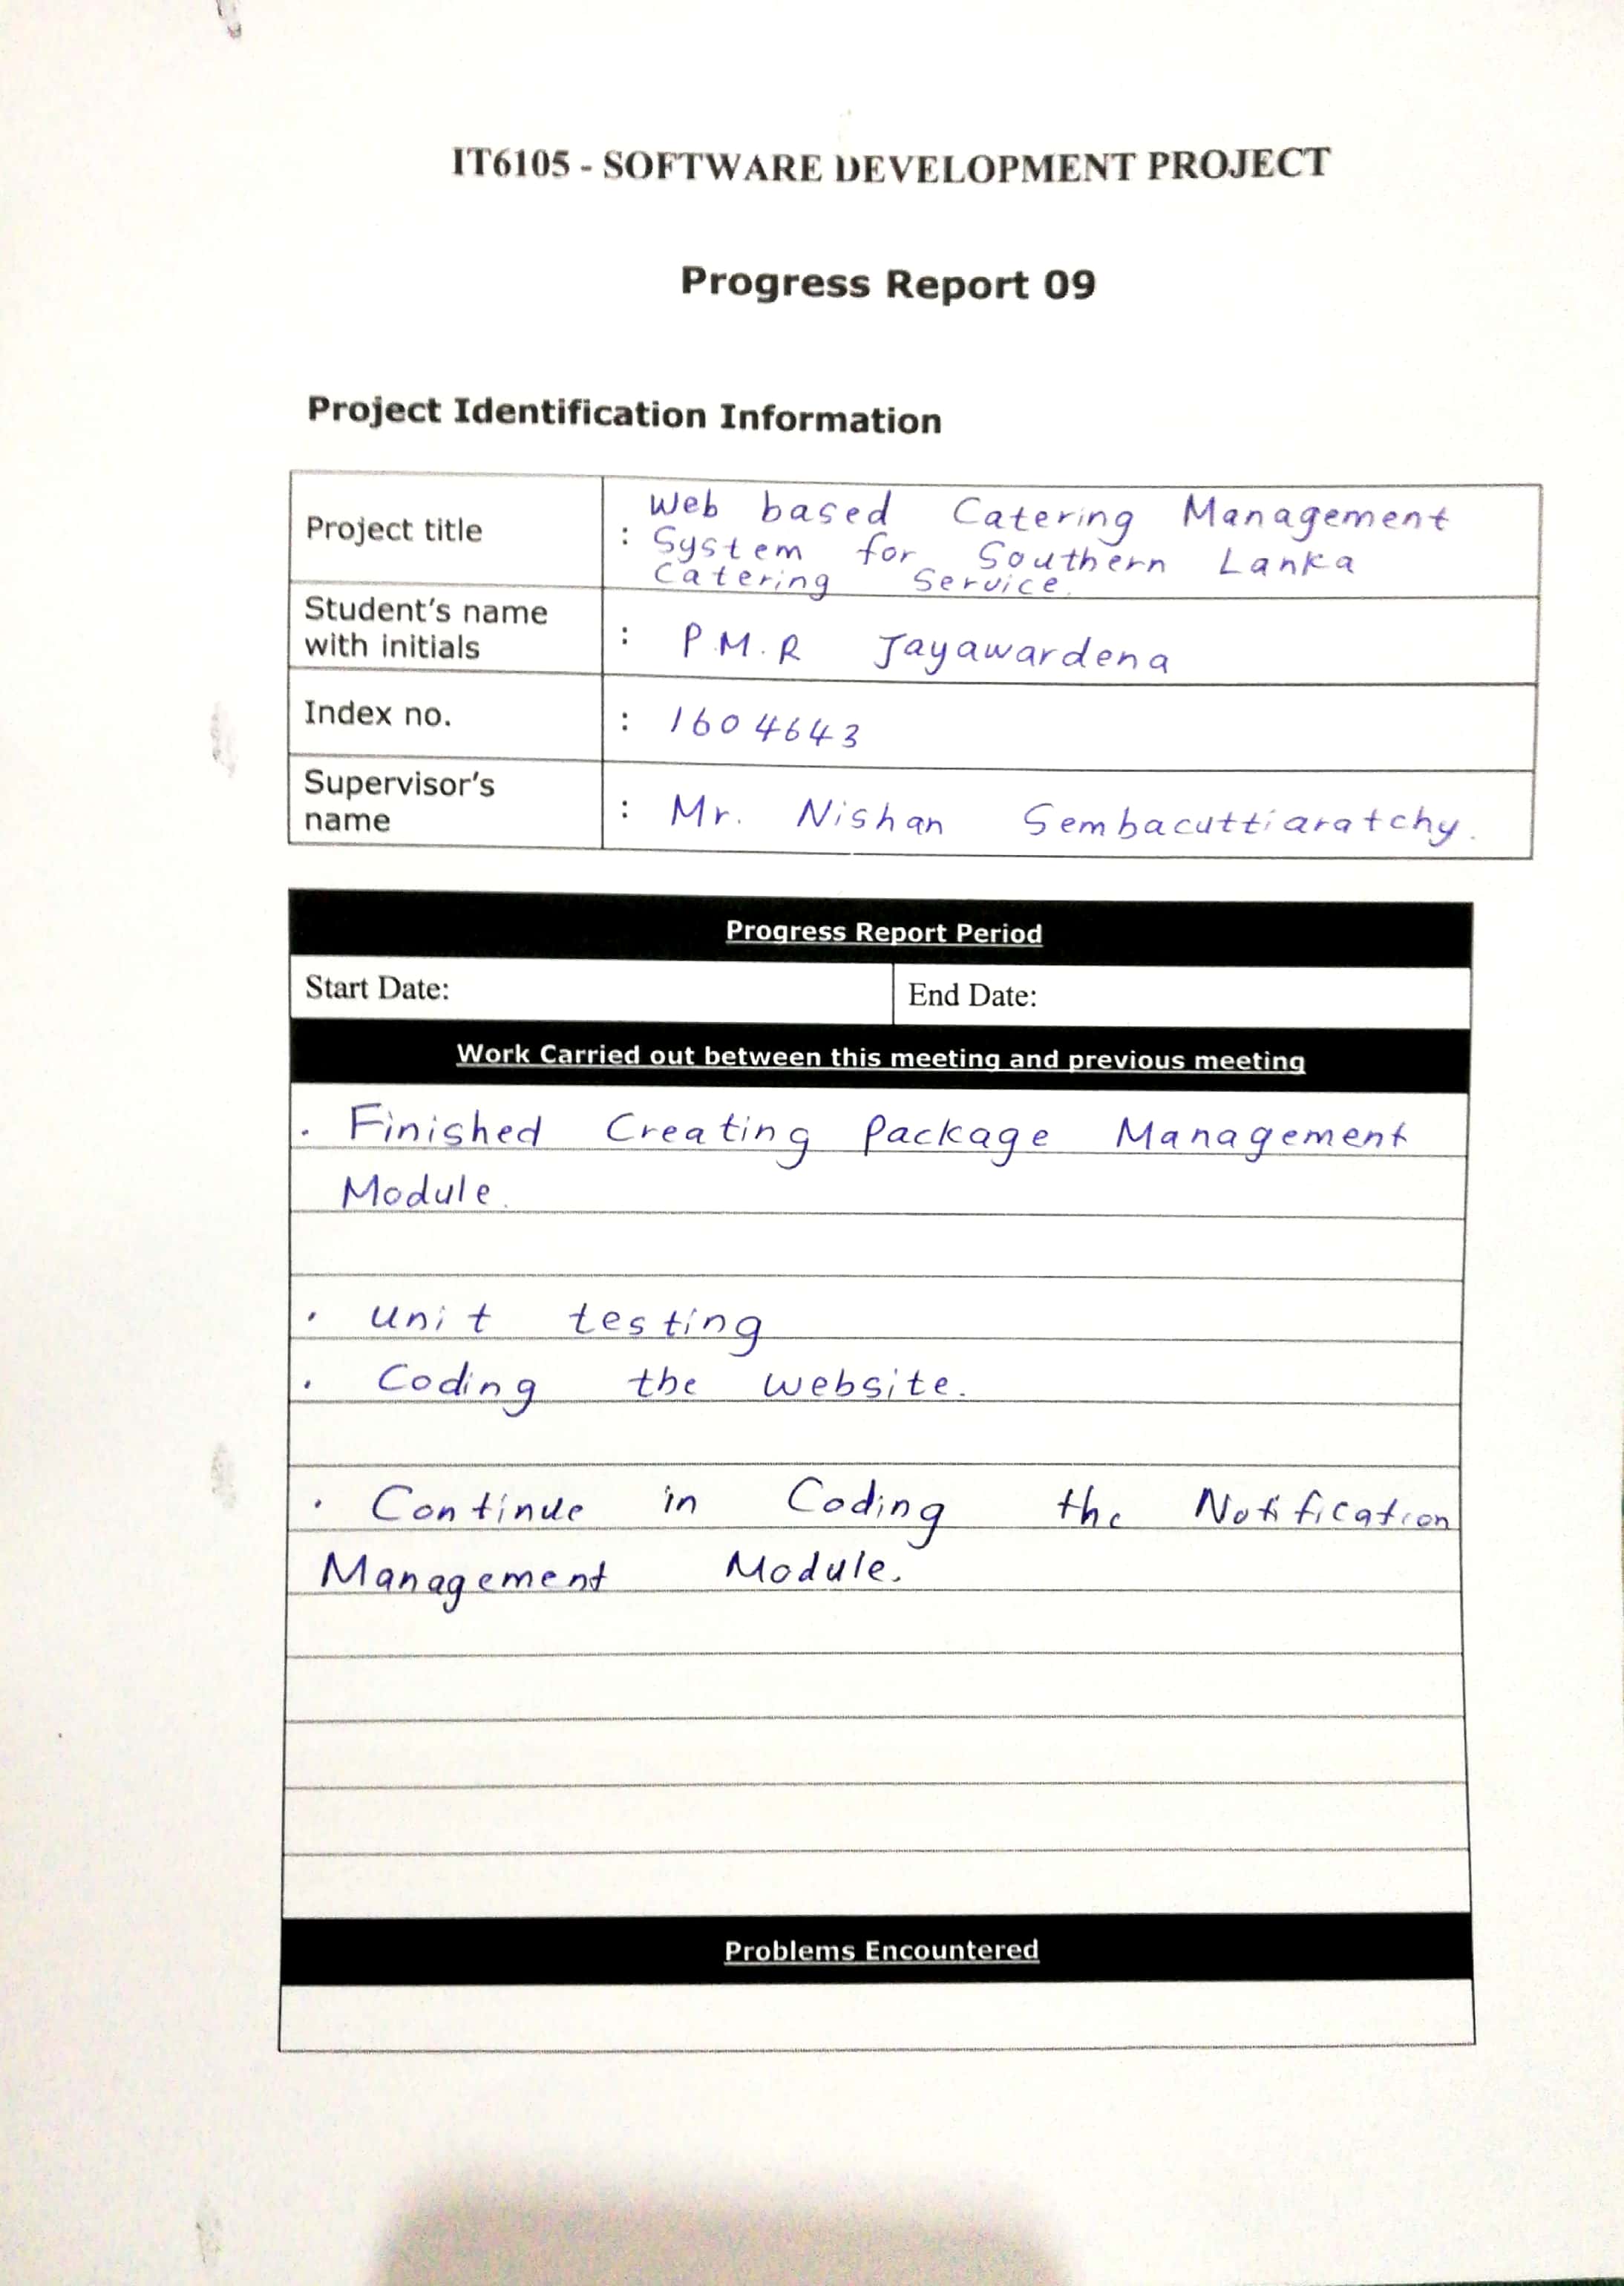 IT6105 - SOFTWARE DEVELOPMENT PROJECT
Progress Report 09
Project Identification Information
Project title : Web based Catering Management
System for Southern Lanka
Catering Service.
Student's name
with initials : P.M.R Jayawardena
Index no. : 1604643
Supervisor's
name : Mr. Nishan Sembacuttiaratchy.
Progress Report Period
Start Date: End Date:
Work Carried out between this meeting and previous meeting
. Finished Creating Package Management
Module.
. Unit testing
. Coding the website.
. Continue in Coding the Notification
Management Module.
Problems Encountered